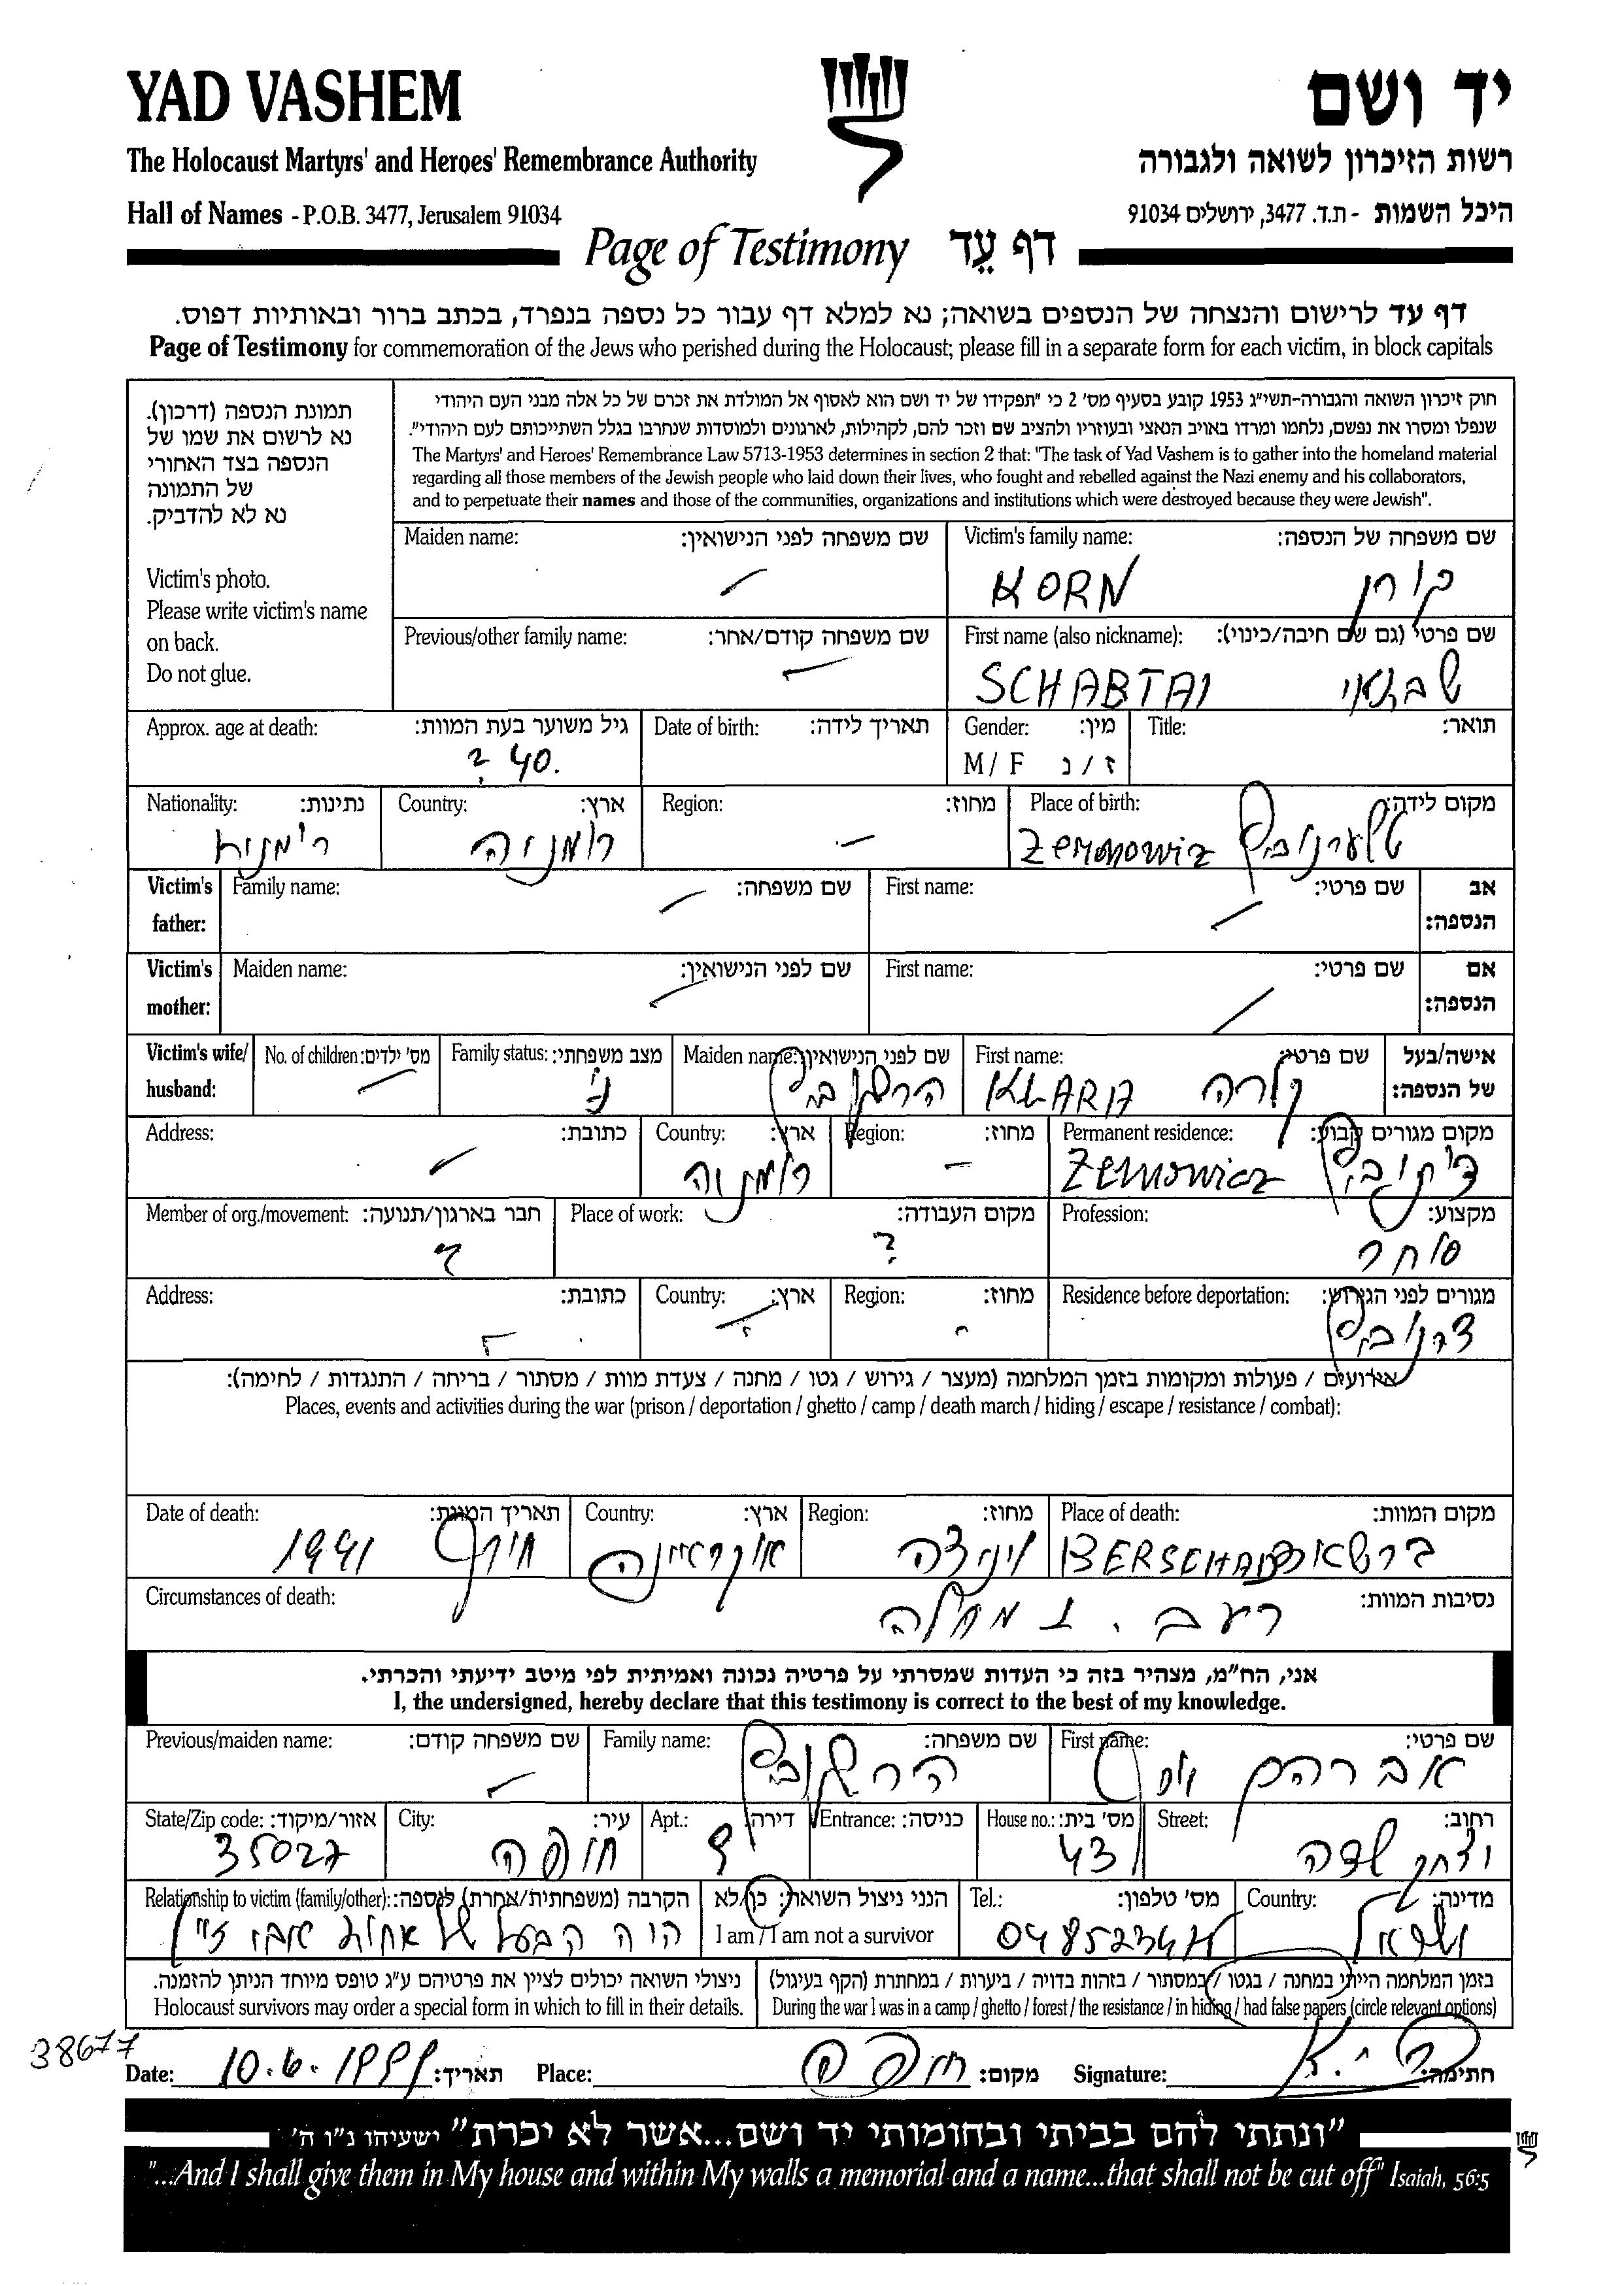 YAD VASHEM
יד ושם
The Holocaust Martyrs' and Heroes' Remembrance Authority
רשות הזיכרון לשואה ולגבורה
Hall of Names - P.O.B. 3477, Jerusalem 91034
היכל השמות - ת.ד. 3477, ירושלים 91034
Page of Testimony דף עֵד
דף עד לרישום והנצחה של הנספים בשואה; נא למלא דף עבור כל נספה בנפרד, בכתב ברור ובאותיות דפוס.
Page of Testimony for commemoration of the Jews who perished during the Holocaust; please fill in a separate form for each victim, in block capitals
תמונת הנספה (דרכון).
נא לרשום את שמו של
הנספה בצד האחורי
של התמונה
נא לא להדביק.
Victim's photo.
Please write victim's name
on back.
Do not glue.
חוק זיכרון השואה והגבורה-תשי"ג 1953 קובע בסעיף מס' 2 כי "תפקידו של יד ושם הוא לאסוף אל המולדת את זכרם של כל אלה מבני העם היהודי
שנפלו ומסרו את נפשם, נלחמו ומרדו באויב הנאצי ובעוזריו ולהציב שם וזכר להם, לקהילות, לארגונים ולמוסדות שנחרבו בגלל השתייכותם לעם היהודי".
The Martyrs' and Heroes' Remembrance Law 5713-1953 determines in section 2 that: "The task of Yad Vashem is to gather into the homeland material
regarding all those members of the Jewish people who laid down their lives, who fought and rebelled against the Nazi enemy and his collaborators,
and to perpetuate their names and those of the communities, organizations and institutions which were destroyed because they were Jewish".
Maiden name: שם משפחה לפני הנישואין:
Victim's family name: שם משפחה של הנספה:
KORN קורן
Previous/other family name: שם משפחה קודם/אחר:
First name (also nickname): שם פרטי (גם שם חיבה/כינוי):
SCHABTAI שבתאי
Approx. age at death: גיל משוער בעת המוות:
40 ?
Date of birth: תאריך לידה:
Gender: מין:
M / F ז / נ
Title: תואר:
Nationality: נתינות:
Country: ארץ:
רומניה
Region: מחוז:
Place of birth: מקום לידה:
Victim's father: אב הנספה:
Family name: שם משפחה:
First name: שם פרטי:
Victim's mother: אם הנספה:
Maiden name: שם לפני הנישואין:
First name: שם פרטי:
Victim's wife/ husband: אישה/בעל של הנספה:
No. of children: מס' ילדים:
Family status: מצב משפחתי:
נ'
Maiden name: שם לפני הנישואין:
הרשקוביץ
First name: שם פרטי:
KLARA קלרה
Address: כתובת:
Country: ארץ:
רומניה
Region: מחוז:
Permanent residence: מקום מגורים קבוע:
Member of org./movement: חבר בארגון/תנועה:
?
Place of work: מקום העבודה:
?
Profession: מקצוע:
סוחר
Address: כתובת:
Country: ארץ:
Region: מחוז:
Residence before deportation: מגורים לפני הגירוש:
אירועים / פעולות ומקומות בזמן המלחמה (מעצר / גירוש / גטו / מחנה / צעדת מוות / מסתור / בריחה / התנגדות / לחימה):
Places, events and activities during the war (prison / deportation / ghetto / camp / death march / hiding / escape / resistance / combat):
Date of death: תאריך המוות:
חורף 1941
Country: ארץ:
אוקראיינה
Region: מחוז:
Place of death: מקום המוות:
BERSCHAD ברשאד
Circumstances of death: נסיבות המוות:
רעב . ומחלה
אני, הח"מ, מצהיר בזה כי העדות שמסרתי על פרטיה נכונה ואמיתית לפי מיטב ידיעתי והכרתי.
I, the undersigned, hereby declare that this testimony is correct to the best of my knowledge.
Previous/maiden name: שם משפחה קודם:
Family name: שם משפחה:
הרשקוביץ
First name: שם פרטי:
אברהם יוסף
State/Zip code: אזור/מיקוד:
35027
City: עיר:
חיפה
Apt.: דירה:
9
Entrance: כניסה:
House no.: מס' בית:
43
Street: רחוב:
יצחק שדה
Relationship to victim (family/other): הקרבה (משפחתית/אחרת) לנספה:
היה הבעל של אחות אבי ז"ל
הנני ניצול השואה: כן/לא
I am / I am not a survivor
Tel.: מס' טלפון:
Country: מדינה:
ישראל
ניצולי השואה יכולים לציין את פרטיהם ע"ג טופס מיוחד הניתן להזמנה.
Holocaust survivors may order a special form in which to fill in their details.
בזמן המלחמה הייתי במחנה / בגטו / במסתור / בזהות בדויה / ביערות / במחתרת (הקף בעיגול)
During the war I was in a camp / ghetto / forest / the resistance / in hiding / had false papers (circle relevant options)
38677
Date: 10.6.1999 תאריך:
Place: חיפה מקום:
Signature: חתימה:
"ונתתי להם בביתי ובחומותי יד ושם...אשר לא יכרת" ישעיהו נ"ו ה'
"...And I shall give them in My house and within My walls a memorial and a name...that shall not be cut off" Isaiah, 56:5